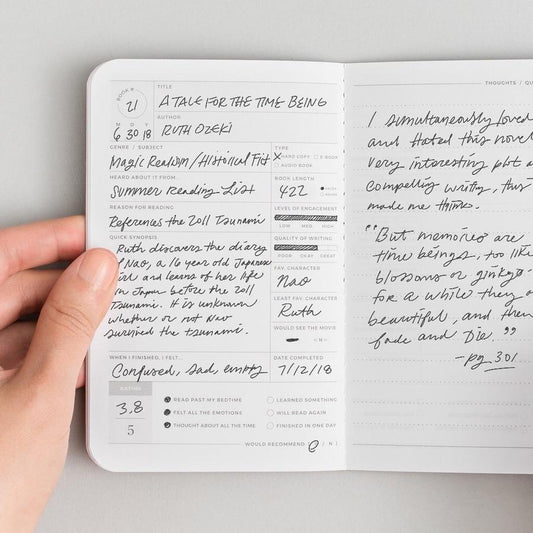 BOOK # 21
TITLE
A TALE FOR THE TIME BEING
M D Y
6 30 18
AUTHOR
RUTH OZEKI
GENRE / SUBJECT
Magic Realism / Historical Fict
TYPE
X HARD COPY E BOOK
AUDIO BOOK
HEARD ABOUT IT FROM...
Summer Reading List
BOOK LENGTH
422
REASON FOR READING
References the 2011 Tsunami
LEVEL OF ENGAGEMENT
LOW MED. HIGH
QUICK SYNOPSIS
Ruth discovers the diary
of Nao, a 16 year old Japanese
girl and learns of her life
in Japan before the 2011
Tsunami. It is unknown
whether or not Nao
survived the tsunami.
QUALITY OF WRITING
POOR OKAY GREAT
FAV. CHARACTER
Nao
LEAST FAV. CHARACTER
Ruth
WOULD SEE THE MOVIE
WHEN I FINISHED, I FELT...
Confused, sad, empty
DATE COMPLETED
7/12/18
RATING
3.8
5
READ PAST MY BEDTIME
FELT ALL THE EMOTIONS
THOUGHT ABOUT ALL THE TIME
LEARNED SOMETHING
WILL READ AGAIN
FINISHED IN ONE DAY
WOULD RECOMMEND / N
THOUGHTS / QU
I simultaneously loved
and hated this novel
very interesting plot a
compelling writing, this
made me
"But memories are
time beings, too, like
blossoms or ginkgo
for a while they a
beautiful, and then
fade and die."
- pg. 301